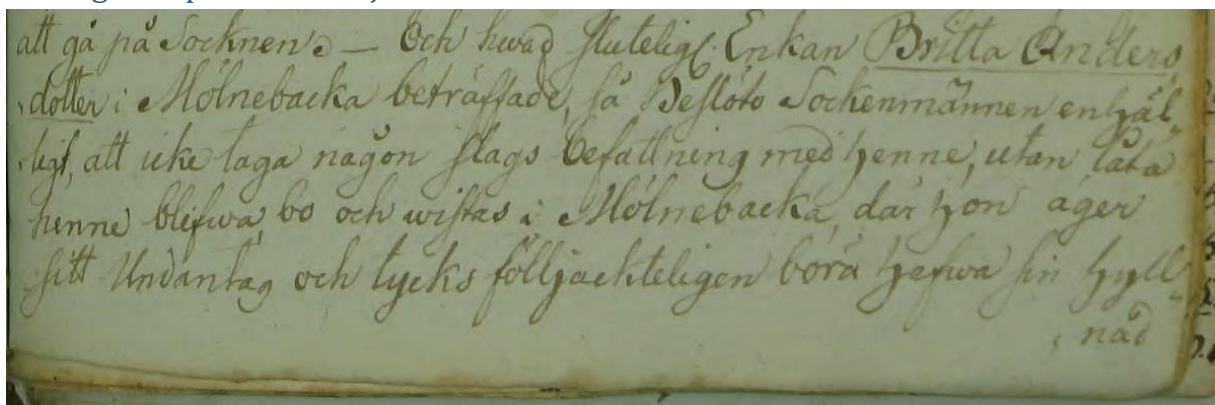 att gå på Socknen. — Och hwad sluteligt Enkan Britta Anders
dotter i Mölnebacka beträffade, så Beslöto Sockenmännen enhäl
ligt, att icke taga någon slags befattning med henne, utan låta
henne blifwa, bo och wistas i Mölnebacka, där hon äger
sitt Undantag och tycks följackteligen böra hafwa sin hyll
nad